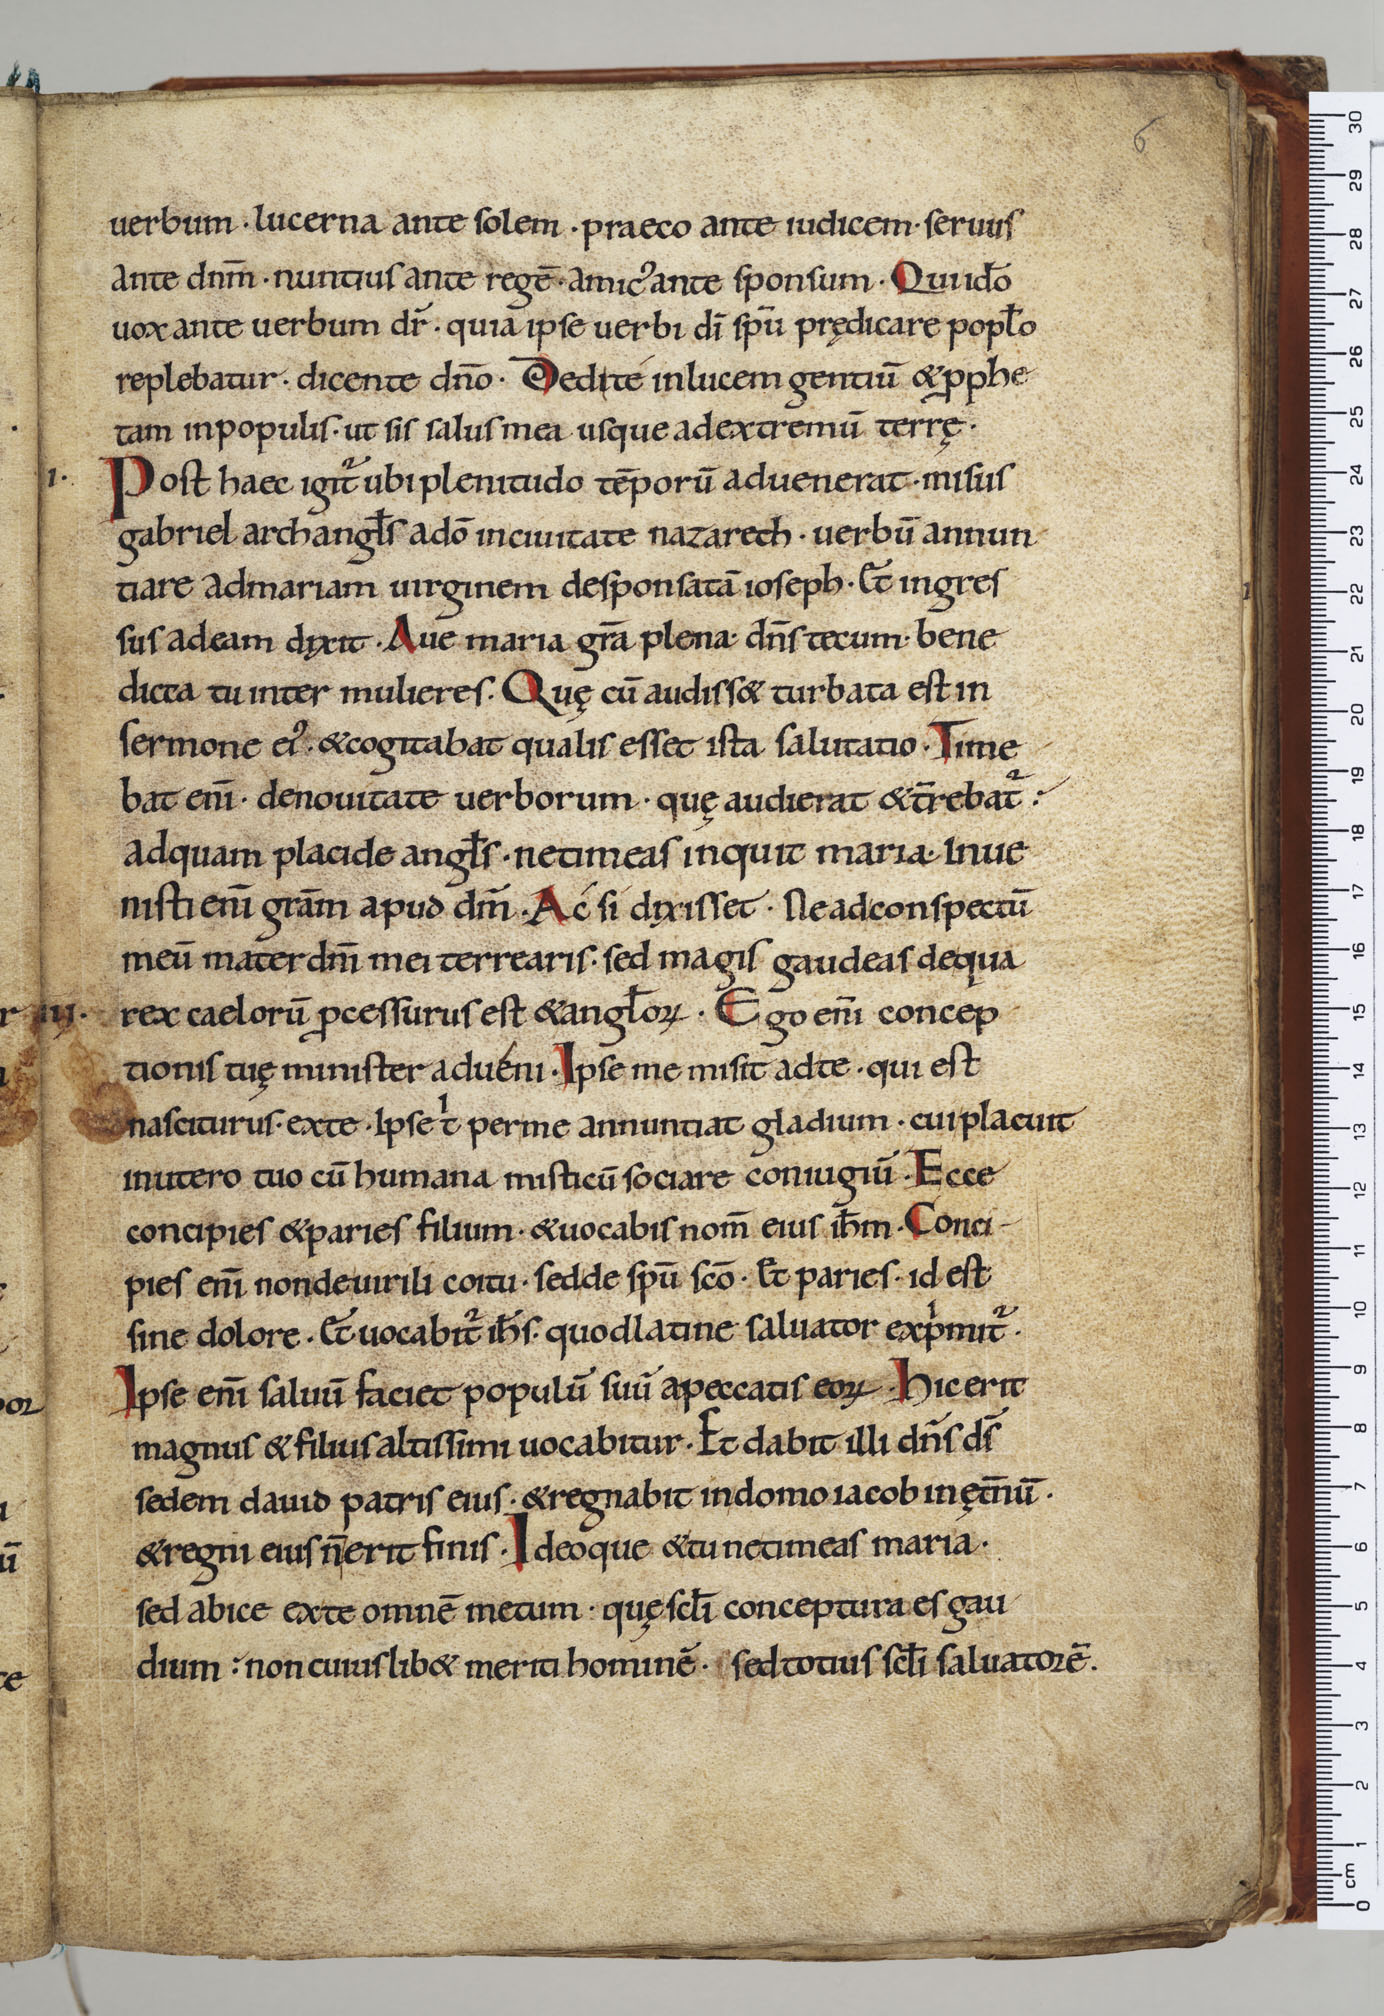 6
uerbum · lucerna ante solem · praeco ante iudicem · seruus
ante dnm̄ · nuntius ante regē · amicꝰ ante sponsum · Qui ido̅
uox ante uerbum dr̄ · quia ipse uerbi dī spū prędicare popl̄o
replebatur · dicente dn̄o · Dedi te inlucem gentiū & ꝓphe
tam inpopulis · ut sis salus mea usque adextremū terrę ·
I· Post haec igit᷑ ubi plenitudo tēporū aduenerat · misus
gabriel archangl̄s adō inciuitate nazareth · uerbū annun
tiare admariam uirginem desponsatā ioseph · Et ingres
sus adeam dixit · Aue maria grā plena · dn̄s tecum · bene
dicta tu inter mulieres · Quę cū audiss& turbata est in
sermone eiꝰ · & cogitabat qualis esset ista salutatio · Time
bat enī · denouitate uerborum · quę audierat & tr̄rebat᷑ :
adquam placide angl̄s · netimeas inquit maria · Inue
nisti enī grām apud dm̄ · Ac si dixisset · Ne adconspectū
meū mater dnī mei terrearis · sed magis gaudeas dequa
III· rex caelorū ꝓcessurus est & angl̄oꝝ · Ego enī concep
tionis tuę minister adueni · Ipse me misit adte · qui est
nasciturus · exte · Ipse t perme annuntiat gladium · cui placuit
inutero tuo cū humana misticū sociare coniugiū · Ecce
concipies & paries filium · & uocabis nom̄ eius ih̄m · Conci-
pies enī nondeuirili coitu · sedde spū scō · Et paries · id est
sine dolore · Et uocabit᷑ ih̄s · quodlatine saluator exp̍mit᷑ ·
Ipse enī saluū faciet populū suū apeccatis eoꝝ · Hic erit
magnus & filius altissimi uocabitur · Et dabit illi dn̄s ds̄
sedem dauid patris eius · & regnabit indomo iacob in ęt̄nū ·
& regni eius n̄ erit finis · Ideoque & tu netimeas maria ·
sed abice exte omnē metum · quę scl̄i conceptura es gau
dium : non cuiuslib& meriti hominē · sed totius scl̄i saluatorē ·